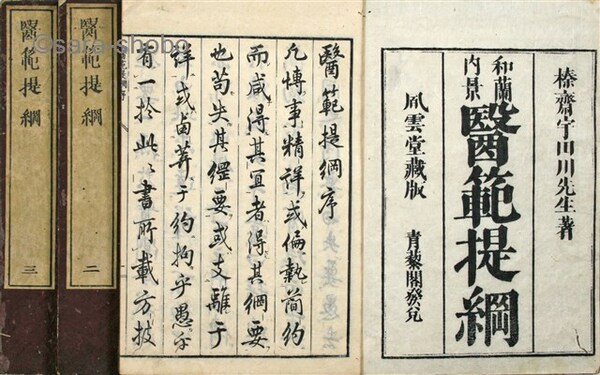 榛齋宇田川先生著
和蘭
内景
醫範提綱
風雲堂藏版
青藜閣發兌
醫範提綱序
凡博事精詳或偏執簡約
而咸得其宜者得其綱要
也苟失其綱要或支離于
詳或鹵莽于約拘乎愚
有一於此以書所載方技
醫範提綱 二
醫範提綱 三
©sara-shobo